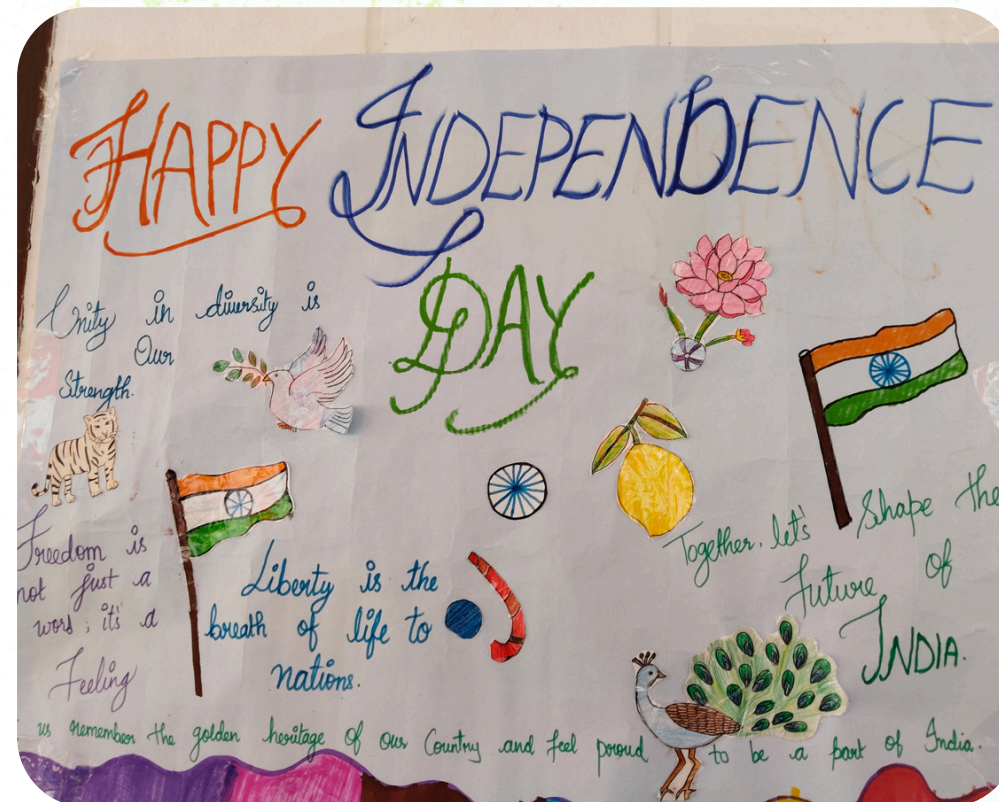 HAPPY INDEPENDENCE
DAY
Unity in diversity is
Our
Strength.
Freedom is
not just a
word; it's a
Feeling
Liberty is the
breath of life to
nations.
Together, let's Shape the
Future of
INDIA.
us remember the golden heritage of our Country and feel proud to be a part of India.